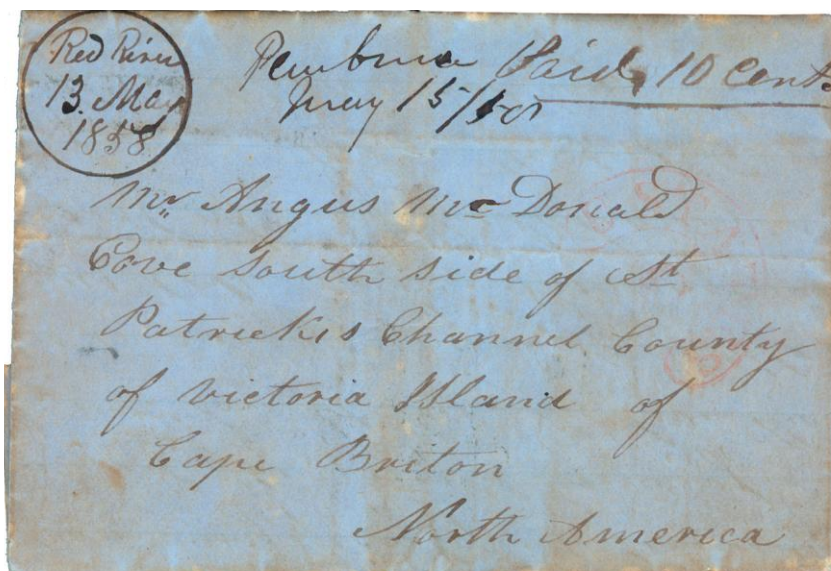 Red River
13. May
1858
Pembina Paid 10 Cents
May 15/58
Mr. Angus Mc Donald
Cove South Side of St
Patrickis Channel County
of Victoria Island of
Cape Briton
North America